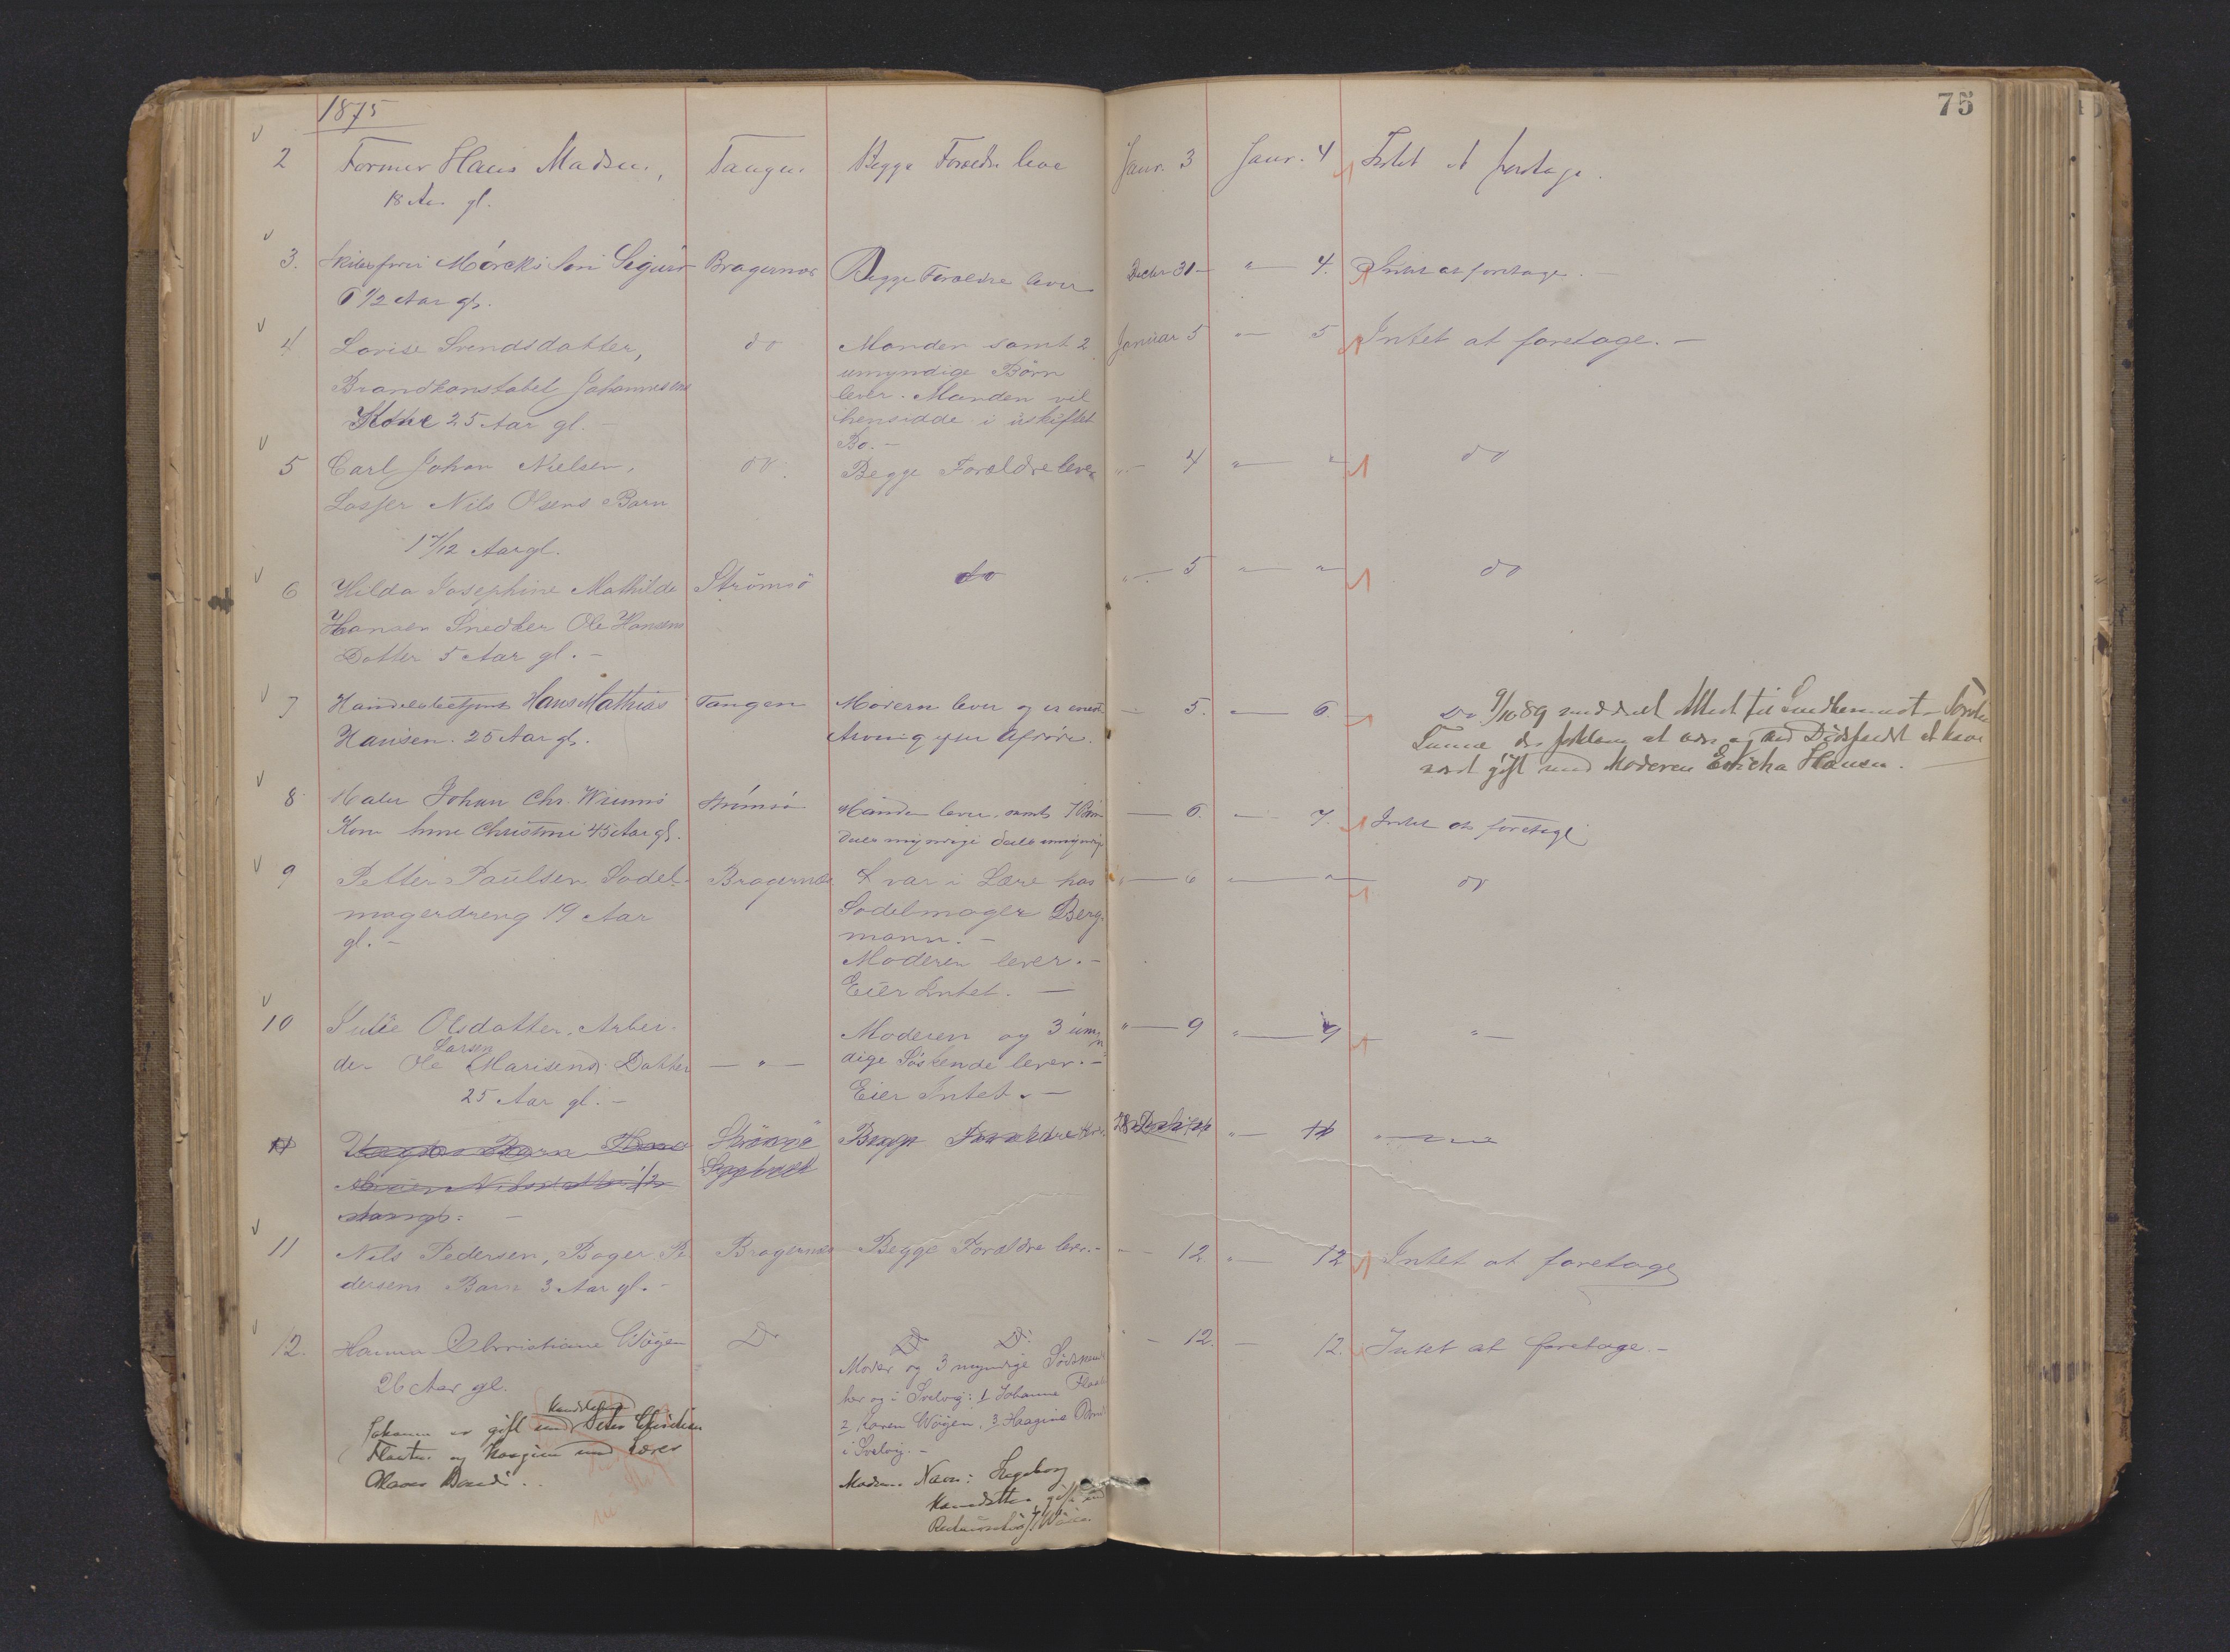 1875
75
2 Former Hans Madsen, Tangen Begge Forældre leve Janr. 3 Janr. 4 Intet at foretage.
18 Aar gl.
3. Skibsfører Mørcks Søn Sigurd Bragernæs Begge Forældre lever Decbr 31 " 4. Intet at foretage.
6 1/2 Aar gl.
4 Lovise Svendsdatter, do Manden samt 2 Januar 5 " 5 Intet at foretage. -
Brandkonstabel Johannesens umyndige Børn
Kone 25 Aar gl. - lever. Manden vil
hensidde i uskiftet
Bo. -
5 Carl Johan Nielsen, do. Begge Forældre lever " 4 " " do
Losser Nils Olsens Barn
1 7/12 Aar gl.
6 Hilda Josephine Mathilde Strömsö do " 5 " " do
Hansen Snedker Ole Hansens
Datter 5 Aar gl. -
7 Handelsbetjent Hans Mathias Tangen Moderen lever og er eneste - 5. - 6. Do 9/10 89 meddelt Attest til
Hansen. 25 Aar gl. Arving efter Afdøde. at være ved Dödsfaldet at have
været gift med Moderen Hansen.
8 Maler Johan Chr. Wiums Strömsö Manden lever, samt 7 Børn - 6. - 7. Intet at foretage
Kone Anne Christine 45 Aar gl. deels myndige deels umyndige
9 Petter Paulsen Sadel- Bragernæs var i Lære hos " 6 " " do
magerdreng 19 Aar Sadelmager Berg-
gl. - mann. -
Moderen lever. -
Eier Intet. -
10 Julie Olsdatter, Arbei- Moderen og 3 umyn " 9 " 9 "
Larsen
der Ole Marisens Datter - " - dige Söskende lever. -
25 Aar gl. - Eier Intet. -
11 Barn Strömsö Begge Forældre " 11
Aar gl. -
11 Nils Pedersen, Bager Pe Bragernæs Begge Forældre lever. - - 12 " 12 Intet at foretage
dersens Barn 3 Aar gl. -
12. Hanna Christiane Wöyen Do Do Do - 12. - 12. Intet at foretage. -
26 Aar gl. Moder og 3 myndige Södskende
her og i Svelvig: 1 Johanne
2, Karen Wöyen, 3 Haagine
i Svelvig. -
Johanne er gift med Peter Christian
og Haagine med Lærer
Moderens Navn: Ingeborg
Hansdatter gift med